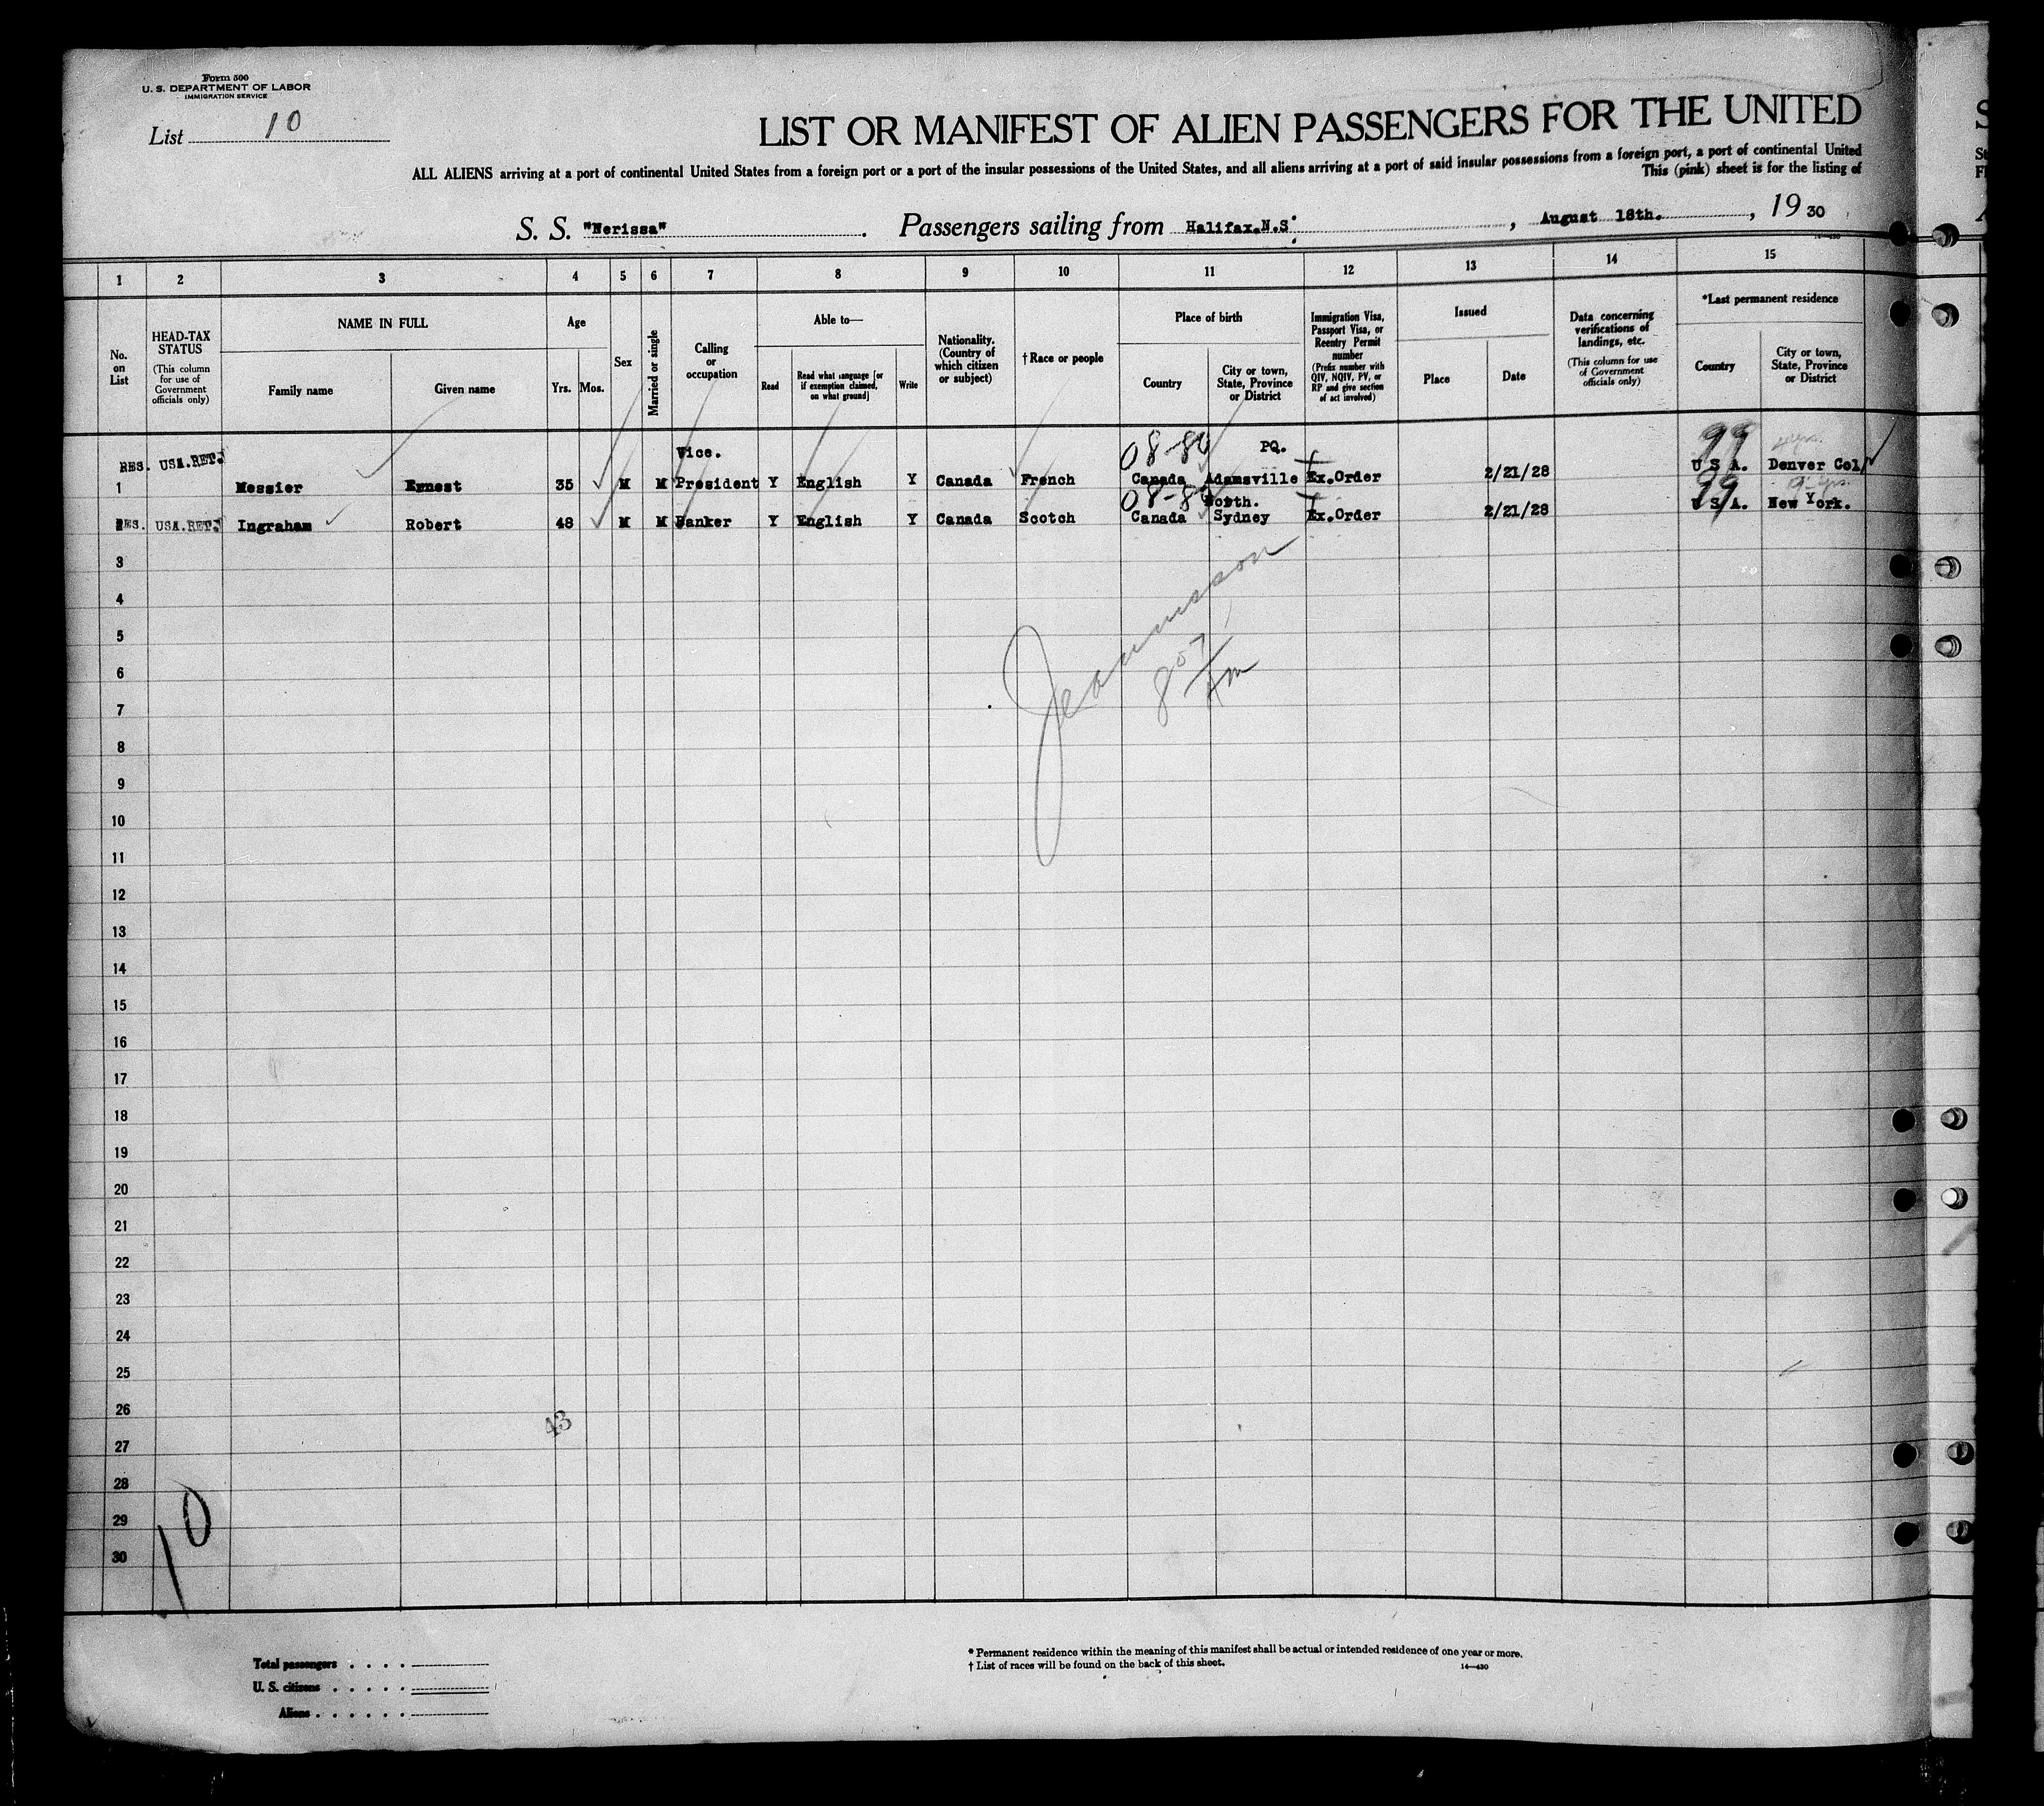 Form 500
U. S. DEPARTMENT OF LABOR
IMMIGRATION SERVICE
List 10
LIST OR MANIFEST OF ALIEN PASSENGERS FOR THE UNITED
ALL ALIENS arriving at a port of continental United States from a foreign port or a port of the insular possessions of the United States, and all aliens arriving at a port of said insular possessions from a foreign port, a port of continental United
This (pink) sheet is for the listing of
S. S. "Nerissa". Passengers sailing from Halifax.N.S., August 18th., 19 30
14—430
1 2 3 4 5 6 7 8 9 10 11 12 13 14 15
No. on List
HEAD-TAX STATUS (This column for use of Government officials only)
NAME IN FULL
Family name
Given name
Age
Yrs. Mos.
Sex
Married or single
Calling or occupation
Able to—
Read
Read what language [or if exemption claimed, on what ground]
Write
Nationality. (Country of which citizen or subject)
†Race or people
Place of birth
Country
City or town, State, Province or District
Immigration Visa, Passport Visa, or Reentry Permit number (Prefix number with QIV, NQIV, PV, or RP and give section of act involved)
Issued
Place
Date
Data concerning verifications of landings, etc. (This column for use of Government officials only)
*Last permanent residence
Country
City or town, State, Province or District
Vice. PQ. 99
RES. USA.RET.
1 Messier Ernest 35 M M President Y English Y Canada French Canada Adamsville Ex.Order 2/21/28 U S A. Denver Col
North. 99
RES. USA.RET. Ingraham Robert 48 M M Banker Y English Y Canada Scotch Canada Sydney Ex.Order 2/21/28 U S A. New York.
3
4
5
6
7
8
9
10
11
12
13
14
15
16
17
18
19
20
21
22
23
24
25
26
43
27
28
29
30
10
Total passengers . . . .
U. S. citizens . . . . .
Aliens . . . . . .
* Permanent residence within the meaning of this manifest shall be actual or intended residence of one year or more.
† List of races will be found on the back of this sheet.
14—430